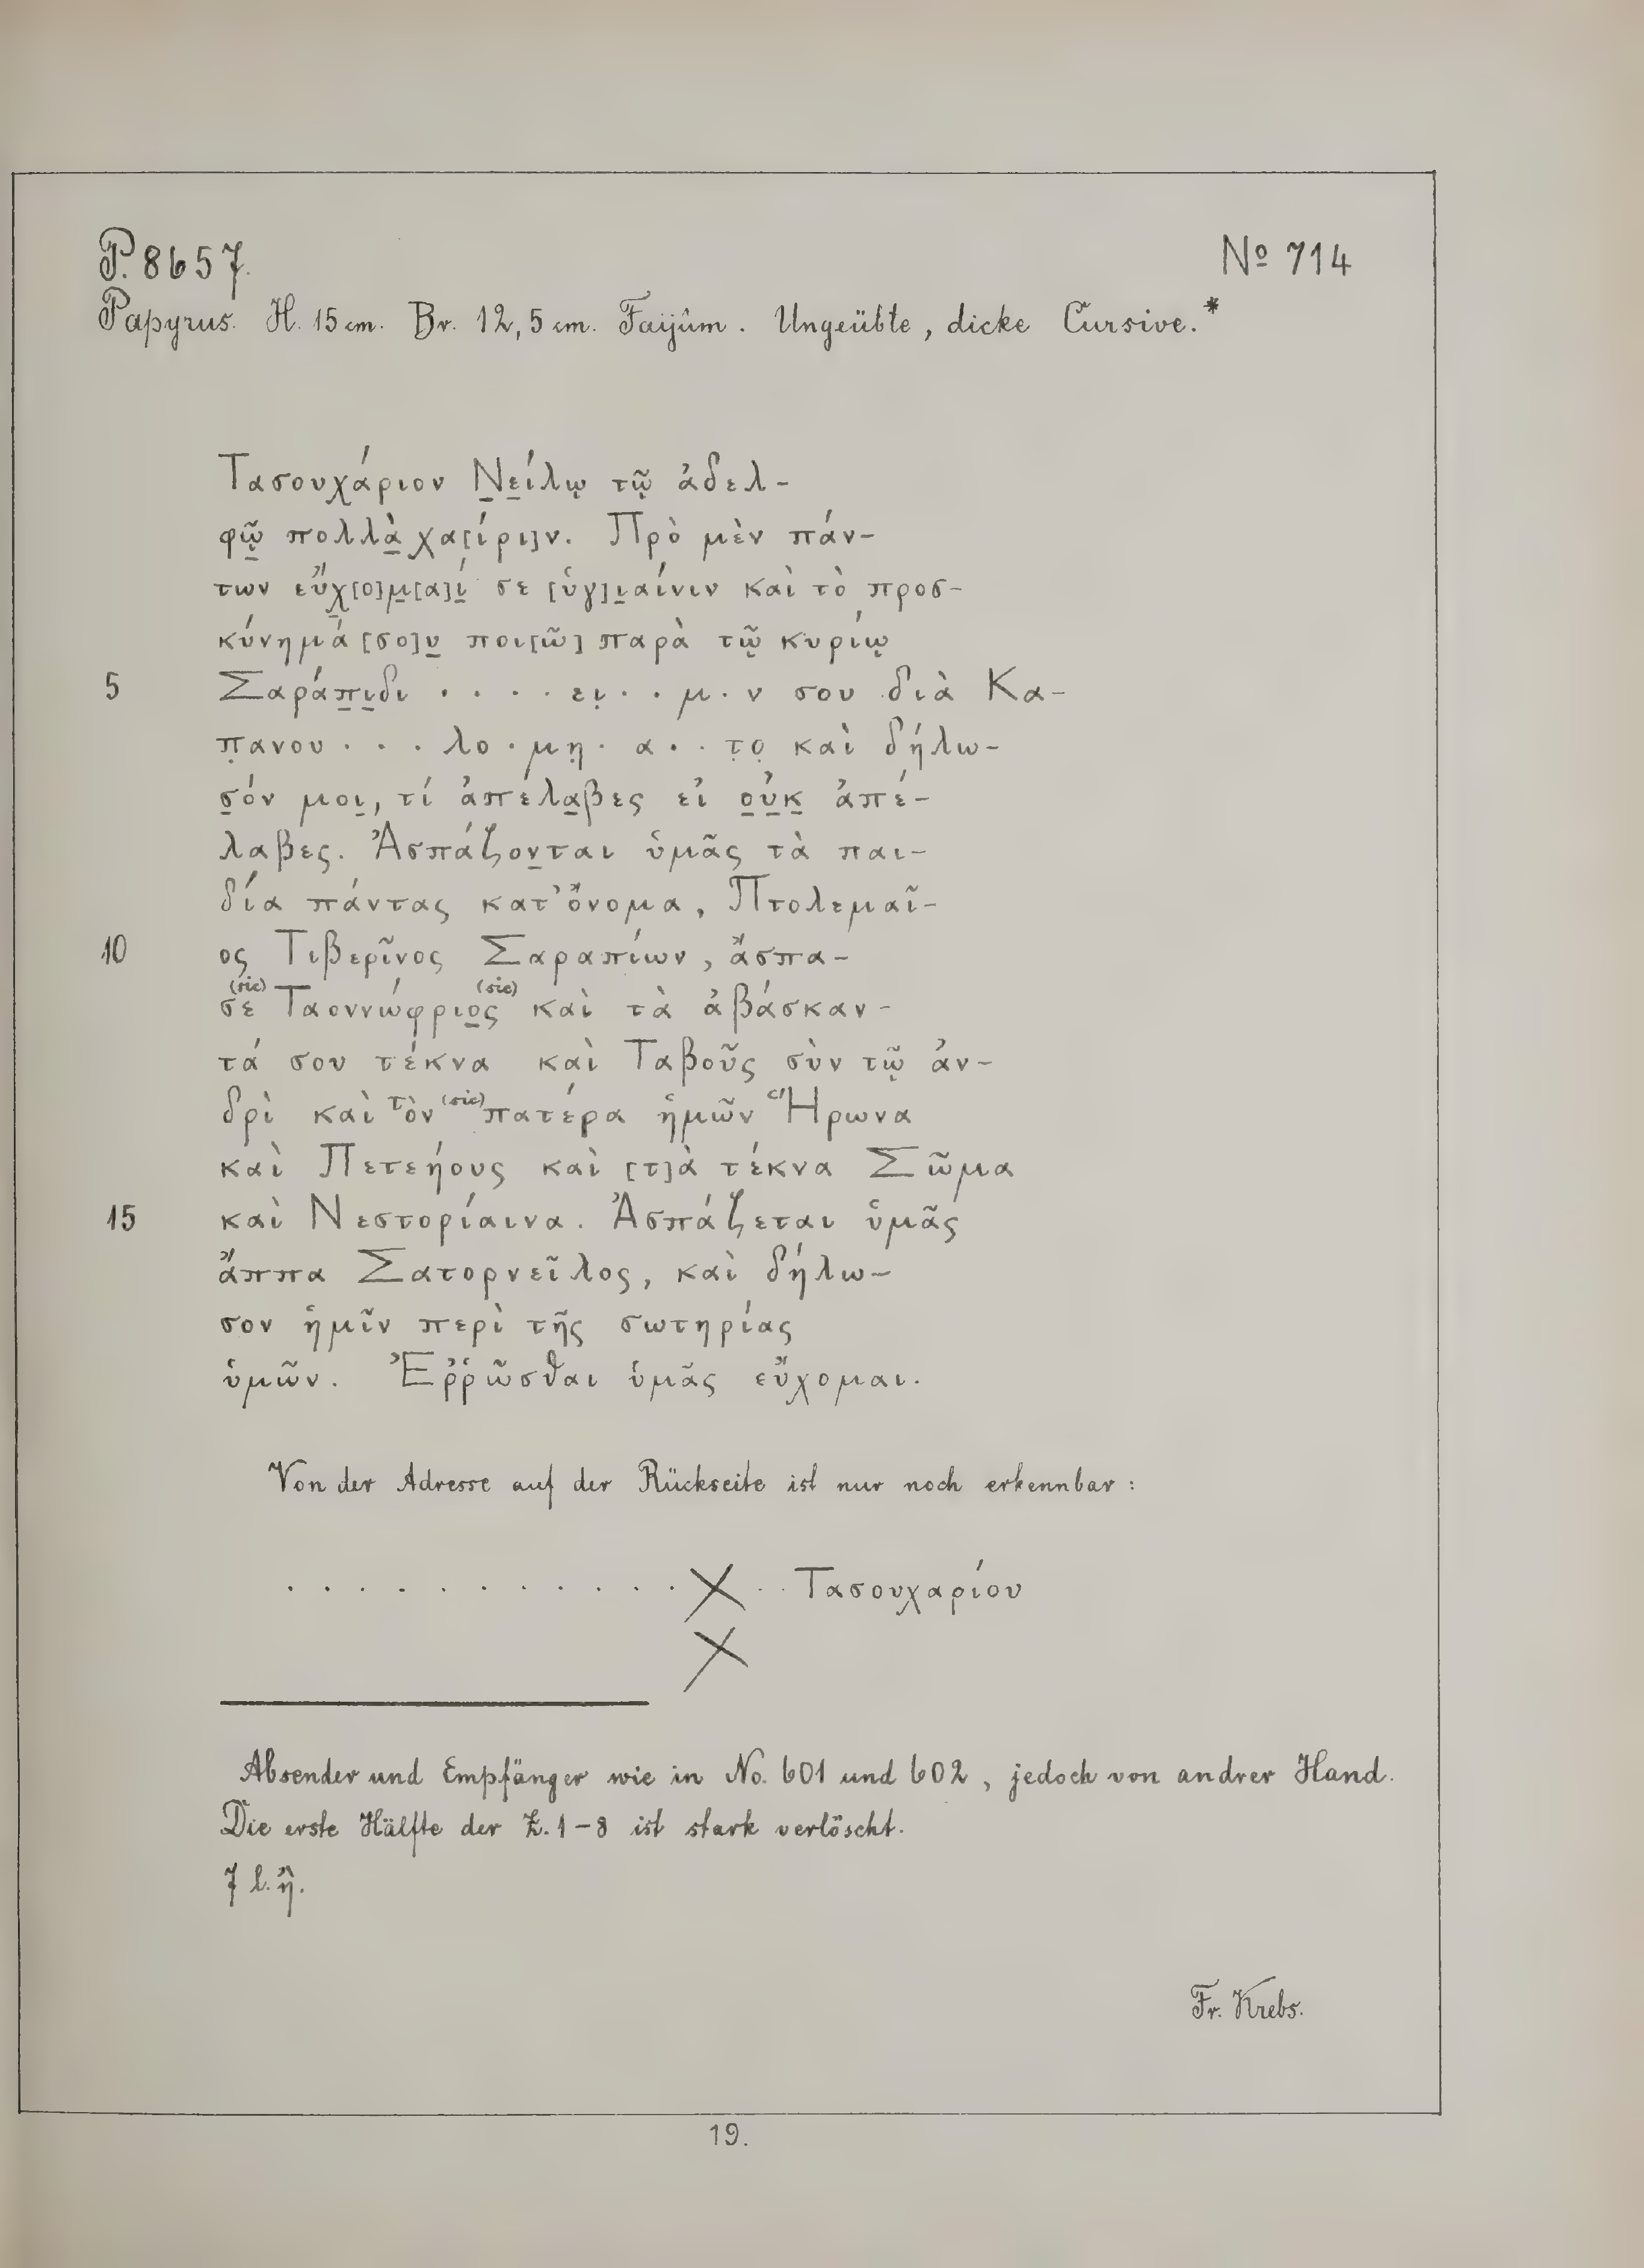 P. 8657. Nº 714
Papyrus. H. 15 cm. Br. 12,5 cm. Faijûm. Ungeübte, dicke Cursive.*
Τασουχάριον Ν̣ε̣ίλῳ τῷ ἀδελ-
φῷ̣ πολλὰ̣ χα[ίρι]ν. Πρὸ μὲν πάν-
των εὔχ̣[ο]μ̣[α]ί̣ σε [ὑγ]ι̣αίνιν καὶ τὸ προσ-
κύνημά [σο]υ̣ ποι[ῶ] παρὰ τῷ κυρίῳ
5 Σαράπ̣ι̣δι . . . . ει̣ . . μ . ν σου διὰ Κα-
π̣ανου . . . λο . μη̣ . α . . τ̣ο̣ καὶ δήλω-
σ̣όν μοι̣, τί ἀπέλα̣βες εἰ ο̣ὐ̣κ̣ ἀπέ-
λαβες. Ἀσπάζον̣ται ὑμᾶς τὰ παι-
δία πάντας κατ' ὄνομα, Πτολεμαῖ-
10 ος Τιβερῖνος Σαραπίων, ἄσπα-
σε (sic) Ταοννώφριο̣ς (sic) καὶ τὰ ἀβάσκαν-
τά σου τέκνα καὶ Ταβοῦς σὺν τῷ ἀν-
δρὶ καὶ τὸν (sic) πατέρα ἡμῶν Ἥρωνα
καὶ Πετεήους καὶ [τ]ὰ τέκνα Σῶμα
15 καὶ Νεστορίαινα. Ἀσπάζεται ὑμᾶς
ἄππα Σατορνεῖλος, καὶ δήλω-
σον ἡμῖν περὶ τῆς σωτηρίας
ὑμῶν. Ἐῤῥῶσθαι ὑμᾶς εὔχομαι.
Von der Adresse auf der Rückseite ist nur noch erkennbar:
. . . . . . . . . . . . X . . Τασουχαρίου
X
Absender und Empfänger wie in No. 601 und 602, jedoch von andrer Hand.
Die erste Hälfte der Z. 1-8 ist stark verlöscht.
7 l. ἢ.
Fr. Krebs.
19.